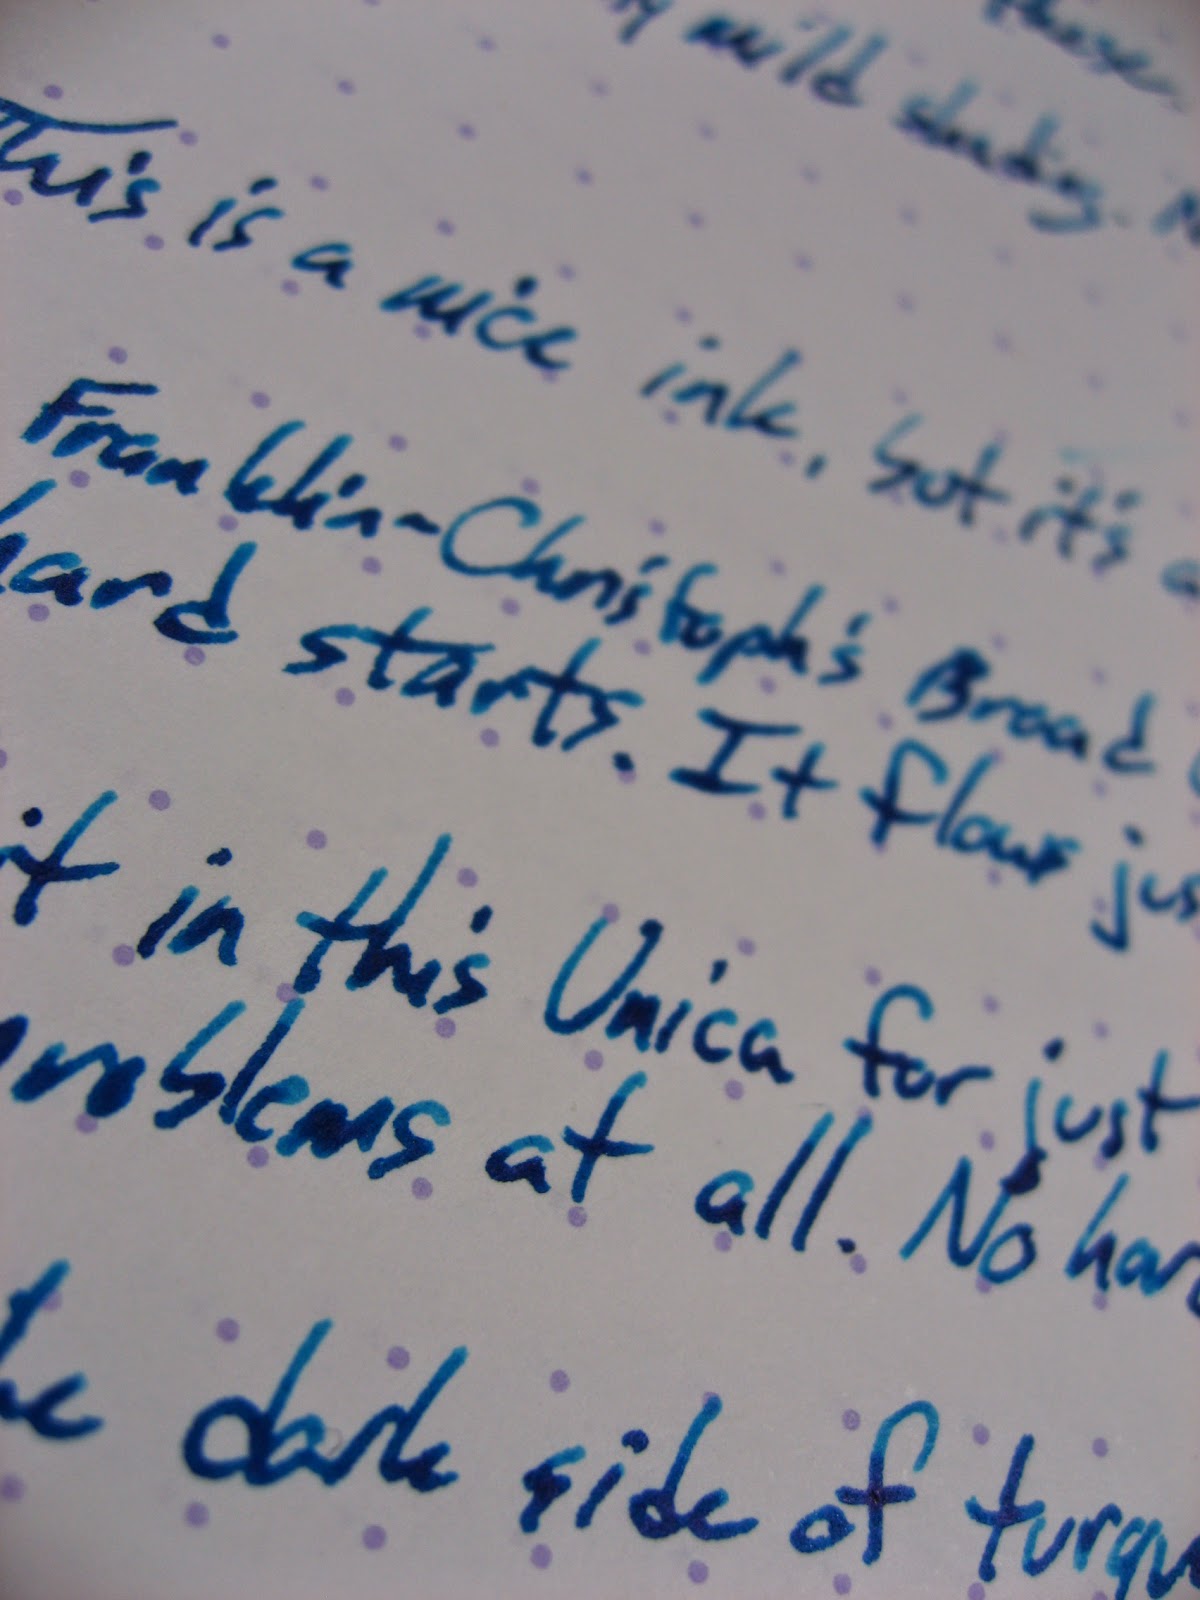 these
mild shading.
This is a nice ink, but it's a
Franklin-Christoph's Broad
hard starts. It flows jus
it in this Unica for just
problems at all. No har
dark side of turqu